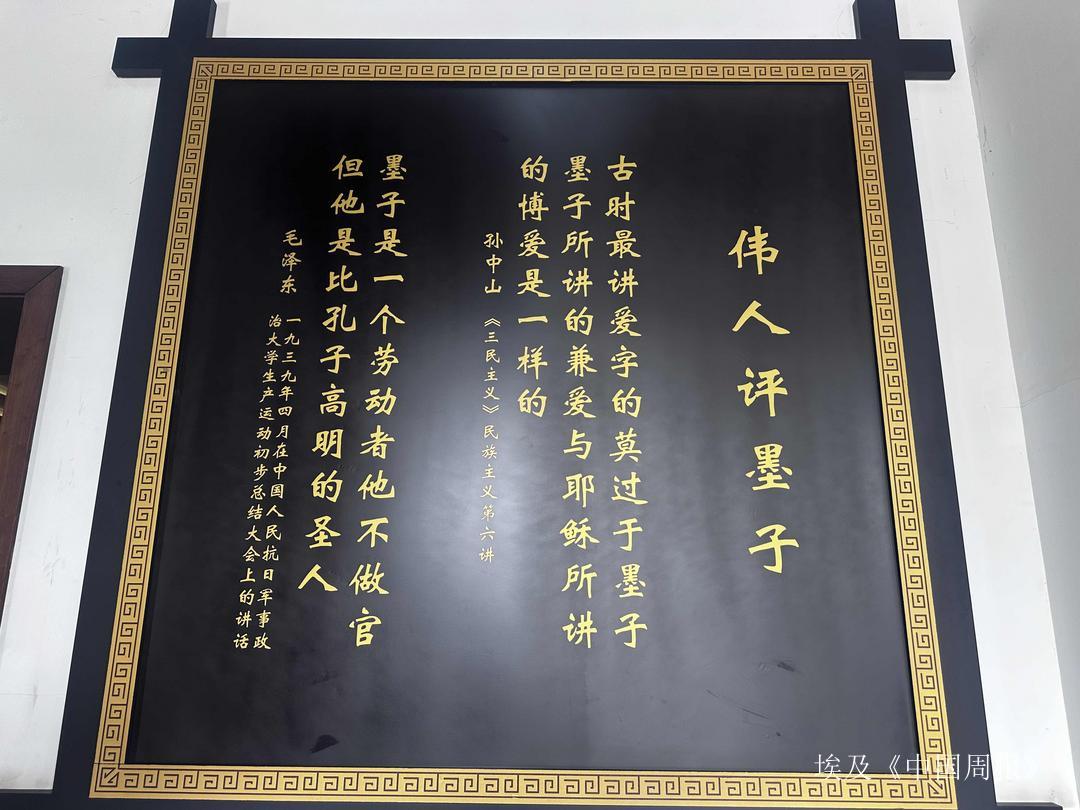 伟人评墨子
古时最讲爱字的莫过于墨子
墨子所讲的兼爱与耶稣所讲
的博爱是一样的
孙中山 《三民主义》民族主义第六讲
墨子是一个劳动者他不做官
但他是比孔子高明的圣人
毛泽东 一九三九年四月在中国人民抗日军事政
治大学生产运动初步总结大会上的讲话
埃及《中国周报》